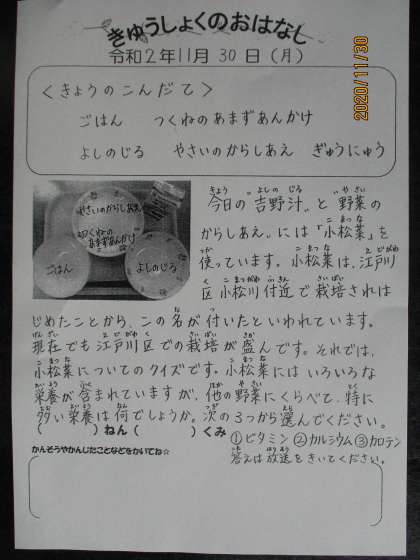 きゅうしょくのおはなし
令和2年11月30日(月)
2020/11/30
<きょうのこんだて>
ごはん つくねのあまずあんかけ
よしのじる やさいのからしあえ ぎゅうにゅう
やさいのからしあえ
つくねの
あまずあんかけ
ごはん
よしのじる
今日の“吉野汁”と“野菜の
からしあえ”には「小松菜」を
使っています。小松菜は、江戸川
区小松川付近で栽培されは
じめたことから、この名が付いたといわれています。
現在でも江戸川区での栽培が盛んです。それでは、
小松菜についてのクイズです。小松菜にはいろいろな
栄養が含まれていますが、他の野菜にくらべて、特に
多い栄養は何でしょうか。次の3つから選んでください。
( )ねん ( )くみ
①ビタミン ②カルシウム ③カロテン
かんそうやかんじたことなどをかいてね☆
答えは放送をきいてください。